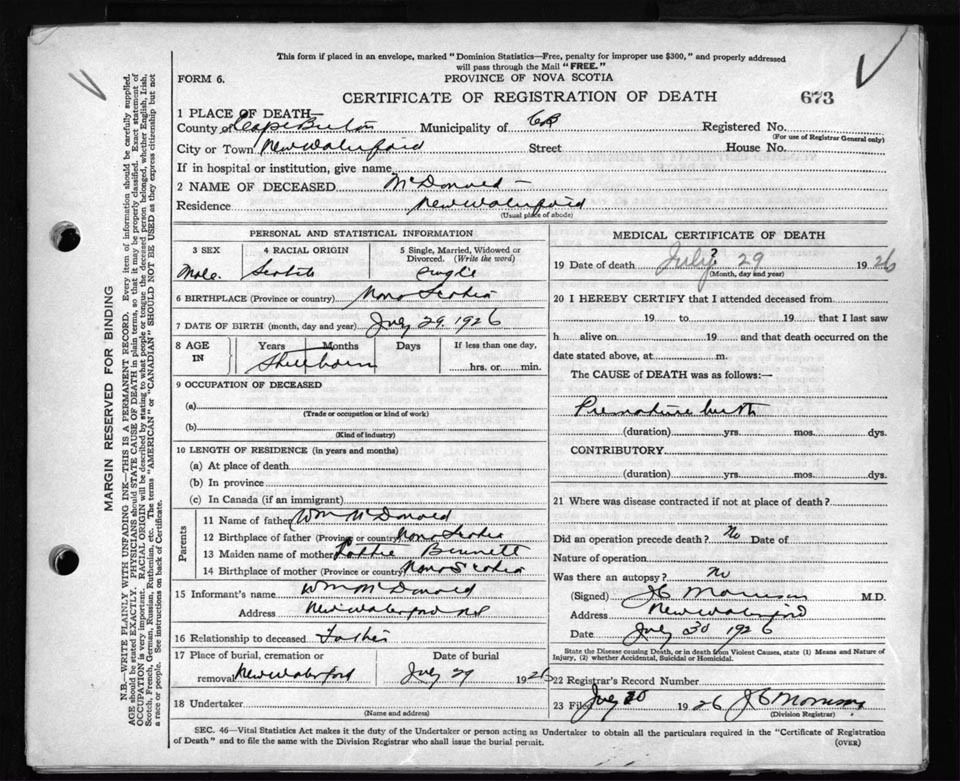 This form if placed in an envelope, marked "Dominion Statistics—Free, penalty for improper use $300," and properly addressed
will pass through the Mail "FREE."
FORM 6. PROVINCE OF NOVA SCOTIA
CERTIFICATE OF REGISTRATION OF DEATH 673
1 PLACE OF DEATH—
County of Cape Breton Municipality of CB Registered No.
(For use of Registrar General only)
City or Town New Waterford Street House No.
If in hospital or institution, give name
2 NAME OF DECEASED McDonald —
Residence New Waterford
(Usual place of abode)
PERSONAL AND STATISTICAL INFORMATION
3 SEX 4 RACIAL ORIGIN 5 Single, Married, Widowed or
Divorced. (Write the word)
Male. Scotch Single
6 BIRTHPLACE (Province or country) Nova Scotia
7 DATE OF BIRTH (month, day and year) July 29. 1926
8 AGE IN Years Months Days If less than one day,
Stillborn hrs. or min.
9 OCCUPATION OF DECEASED
(a)
(Trade or occupation or kind of work)
(b)
(Kind of industry)
10 LENGTH OF RESIDENCE (in years and months)
(a) At place of death
(b) In province
(c) In Canada (if an immigrant)
Parents
11 Name of father Wm McDonald
12 Birthplace of father (Province or country) Nova Scotia
13 Maiden name of mother Bennett
14 Birthplace of mother (Province or country) Nova Scotia
15 Informant's name Wm McDonald
Address New Waterford NS
16 Relationship to deceased Father
17 Place of burial, cremation or Date of burial
removal New Waterford July 29 1926
18 Undertaker
(Name and address)
MEDICAL CERTIFICATE OF DEATH
19 Date of death July ? 29 1926
(Month, day and year)
20 I HEREBY CERTIFY that I attended deceased from
19 to 19 that I last saw
h alive on 19 and that death occurred on the
date stated above, at m.
The CAUSE of DEATH was as follows:—
Premature birth
(duration) yrs. mos. dys.
CONTRIBUTORY
(duration) yrs. mos. dys.
21 Where was disease contracted if not at place of death?
Did an operation precede death? No Date of
Nature of operation
Was there an autopsy? No
(Signed) JC Morrison M.D.
Address New Waterford
Date July 30 1926
State the Disease causing Death, or in death from Violent Causes, state (1) Means and Nature of
Injury, (2) whether Accidental, Suicidal or Homicidal.
22 Registrar's Record Number
23 Filed July 30 1926 JC Morrison
(Division Registrar)
SEC. 46—Vital Statistics Act makes it the duty of the Undertaker or person acting as Undertaker to obtain all the particulars required in the "Certificate of Registration
of Death" and to file the same with the Division Registrar who shall issue the burial permit. (OVER)
MARGIN RESERVED FOR BINDING
N.B.—WRITE PLAINLY WITH UNFADING INK—THIS IS A PERMANENT RECORD. Every item of information should be carefully supplied.
AGE should be stated EXACTLY. PHYSICIANS should STATE CAUSE OF DEATH in plain terms, so that it may be properly classified. Exact statement of
OCCUPATION is very important. RACIAL ORIGIN will be described by stating to what people or tongue the deceased person belonged, whether English, Irish,
Scotch, French, German, Russian, Ruthenian, etc. The terms "AMERICAN" or "CANADIAN" SHOULD NOT BE USED as they express citizenship but not
a race or people. See instructions on back of Certificate.